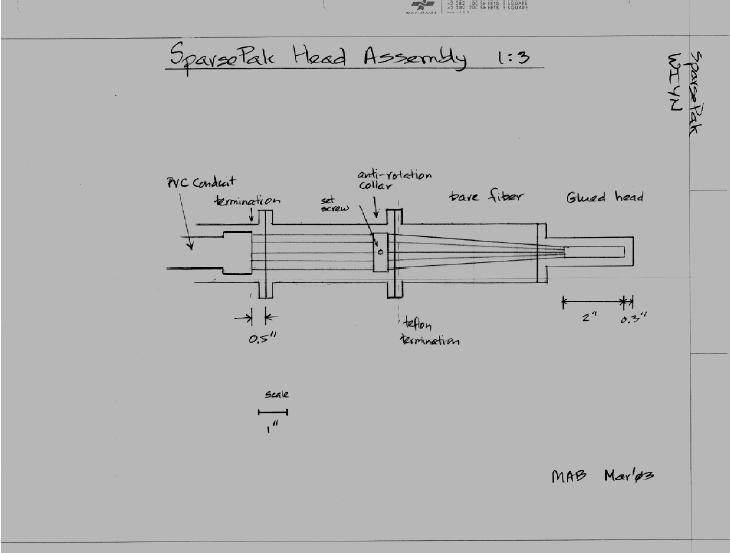 SparsePak Head Assembly 1:3
SparsePak
WIYN
PVC Conduit
termination
set
screw
anti-rotation
collar
bare fiber
Glued head
0.5"
teflon
termination
2"
0.3"
scale
1"
MAB Mar'03